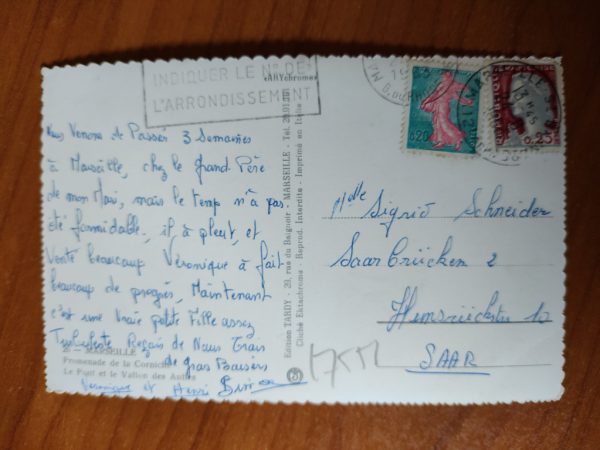 INDIQUER LE N° DE
L'ARRONDISSEMENT
TARDYchrome
0,20
0,25
Nous Venons de Passer 3 Semaines
à Marseille, chez le Grand Père
de mon Mari, mais le temp n'a pas
été formidable, il à pleut, et
Vente beaucoup Véronique à fait
beaucoup de progrès, Maintenant
c'est une Vraie petite Fille assez
Turbulente Reçois de Nous Trois
de gros Baisers
Véronique et Henri
MARSEILLE
Promenade de la Corniche
Le Pont et le Vallon des Auffes
Edition TARDY - 29, rue du Baignoir - MARSEILLE - Tél.
Cliché Ektachrome - Reprod. Interdite - Imprimé en Italie
Mlle Sigrid Schneider
Saarbrücken 2
Hunsrückstr 10
SAAR